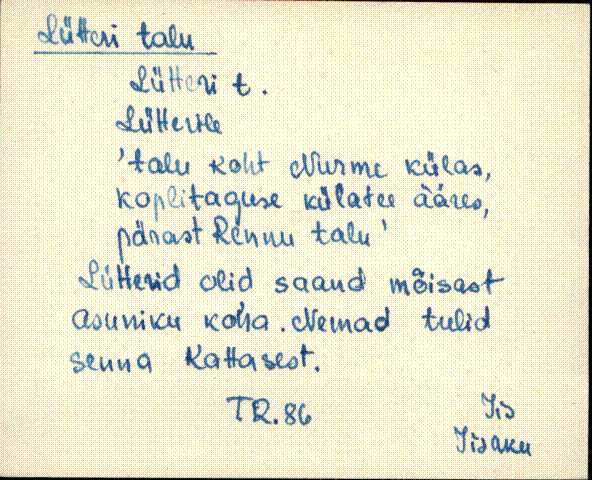 Lütteri talu
Lütteri t.
Lütterile
'talu koht Nurme külas,
koplitaguse külatee ääres,
pärast Rennu talu'
Lütterid olid saand mõisast
asuniku koha. Nemad tulid
senna Kattasest.
TR. 86
Iis
Iisaku